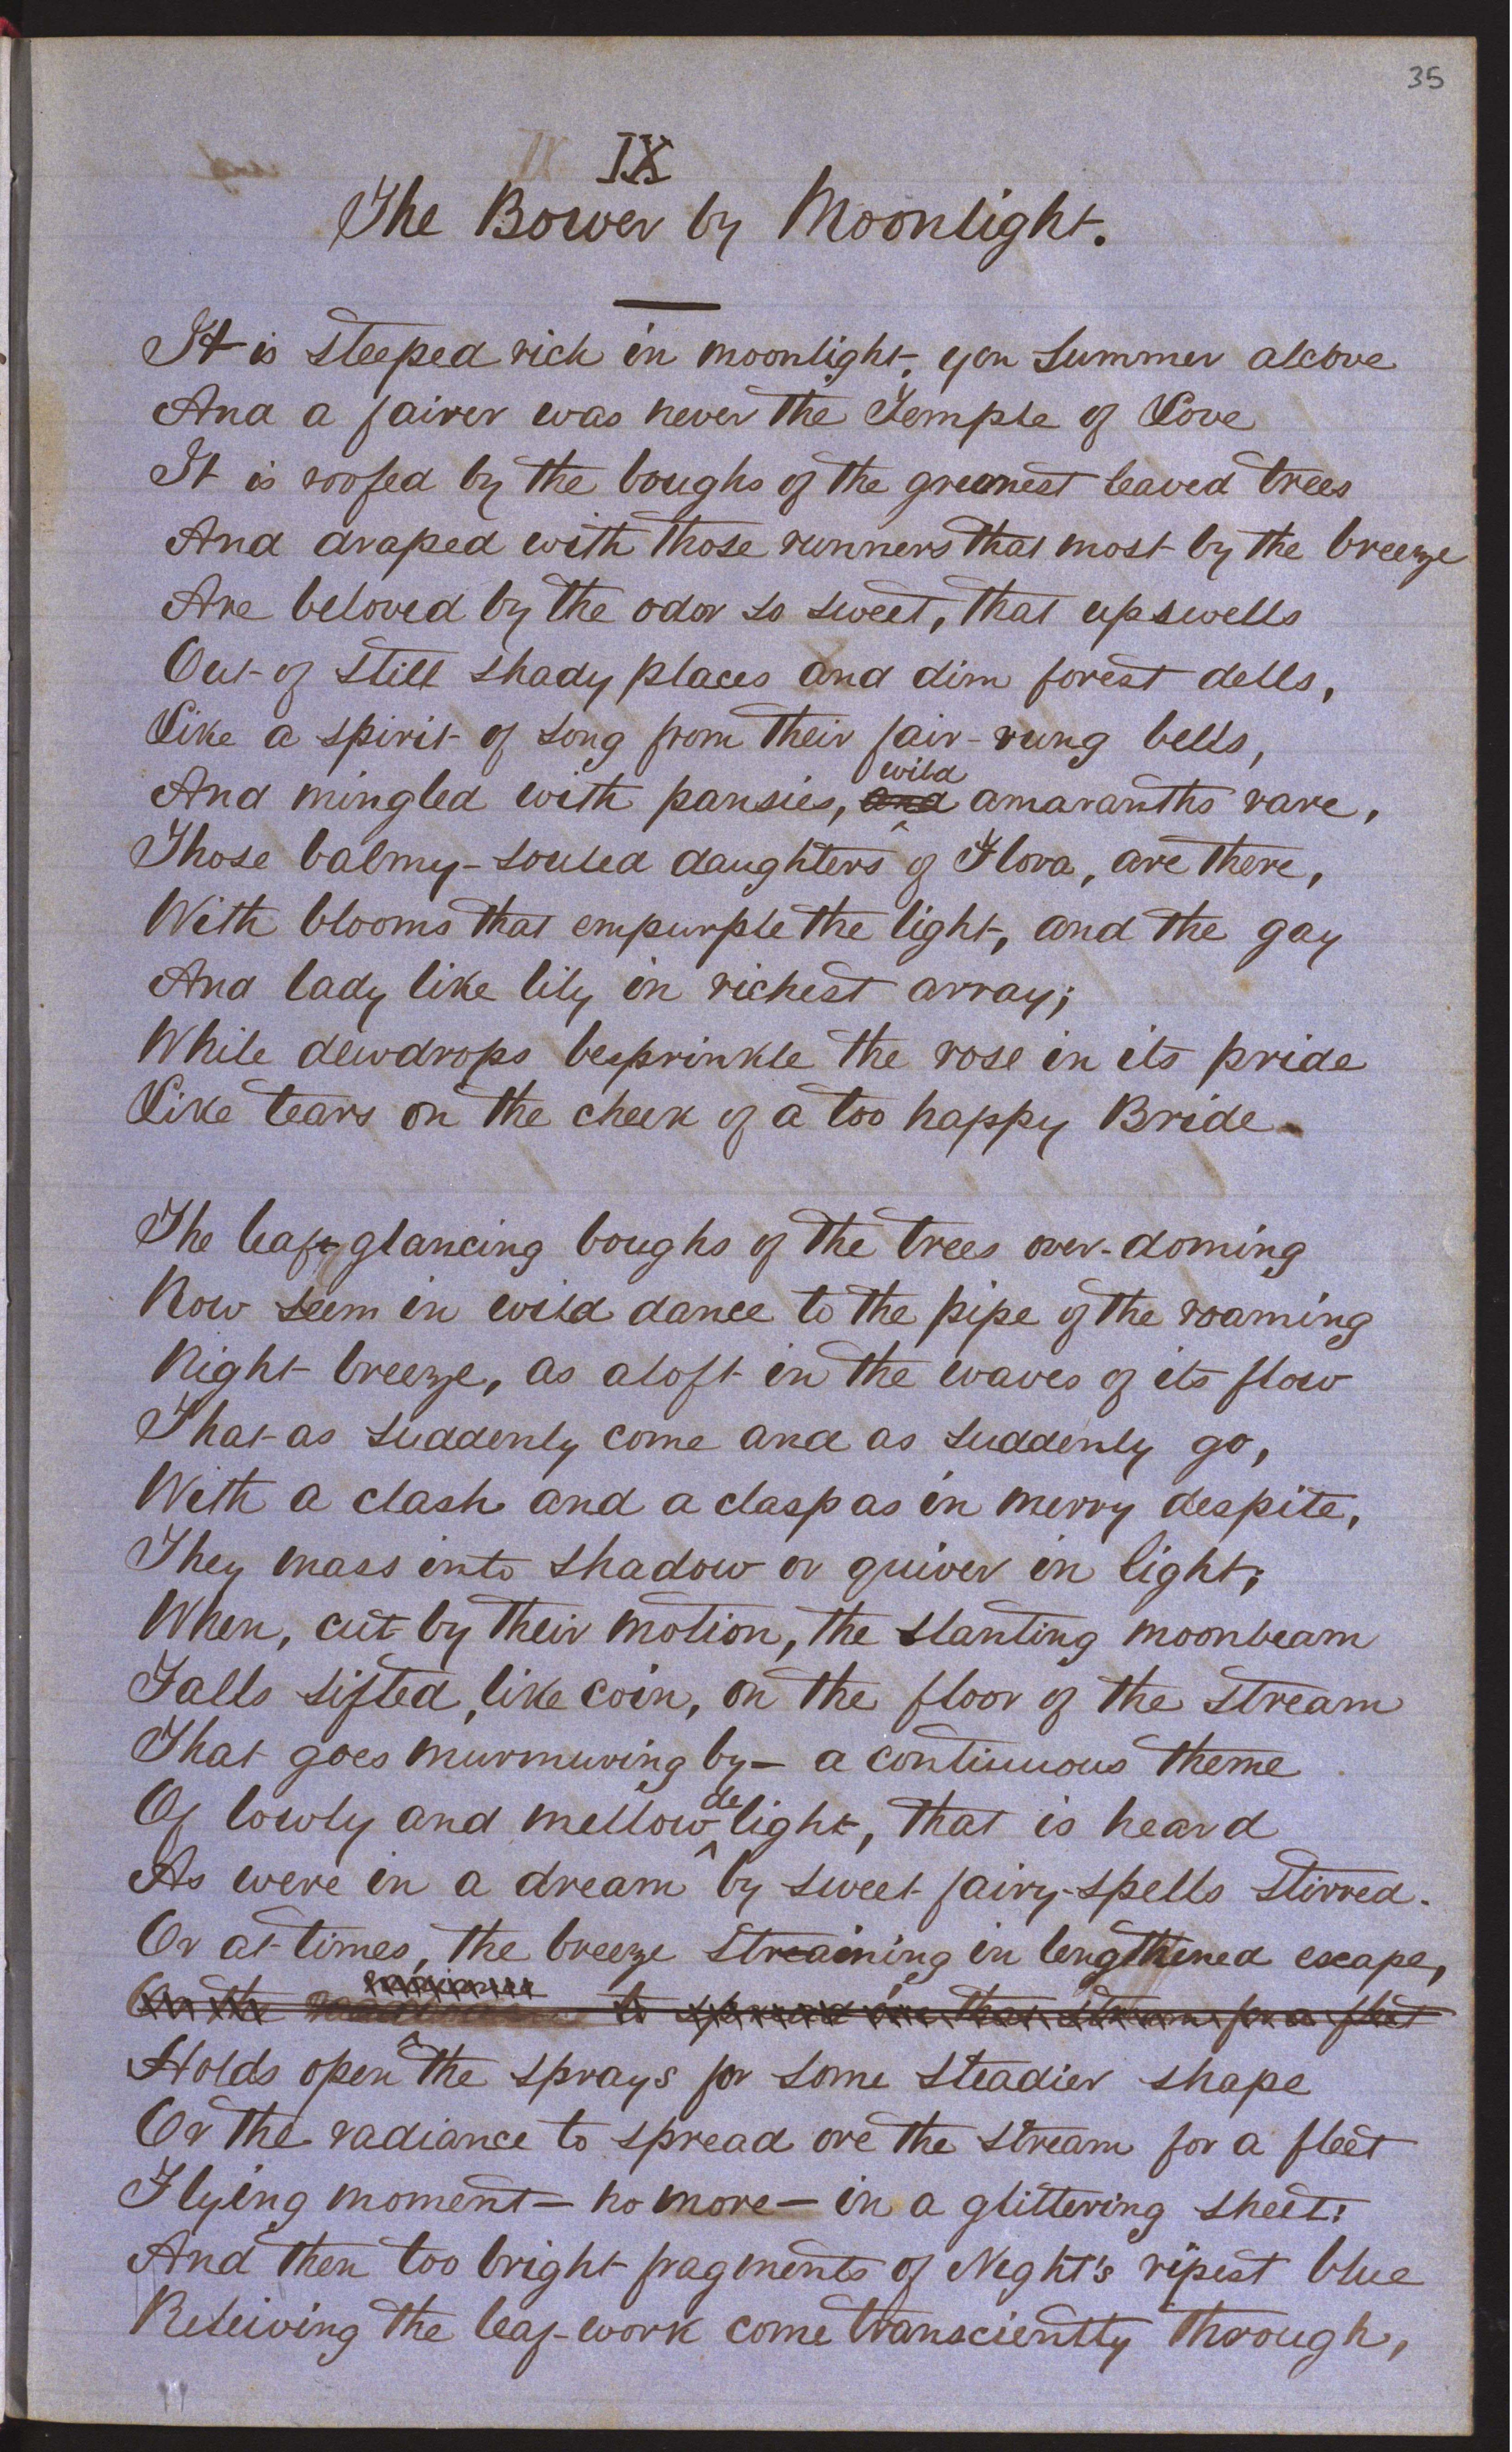 35
IX
The Bower by Moonlight.
It is steeped rich in moonlight, yon summer alcove
And a fairer was never the Temple of Love
It is roofed by the boughs of the greenest leaved trees
And draped with those runners that most by the breeze
Are beloved by the odor so sweet, that upswells
Out of still shady places and dim forest dells,
Like a spirit of song from their fair-rung bells,
wild
And mingled with pansies, and amaranths rare,
Those balmy-souled daughters of Flora, are there,
With blooms that empurple the light, and the gay
And lady like lily in richest array;
While dewdrops besprinkle the rose in its pride
Like tears on the cheek of a too happy Bride
The leaf-glancing boughs of the trees over-doming
Now seem in wild dance to the pipe of the roaming
Night breeze, as aloft in the waves of its flow
That as suddenly come and as suddenly go,
With a clash and a clasp as in merry despite,
They mass into shadow or quiver in light;
When, cut by their motion, the slanting moonbeam
Falls sifted, like coin, on the floor of the stream
That goes murmuring by – a continuous theme
de
Of lowly and mellow light, that is heard
As were in a dream by sweet fairy-spells stirred.
Or at times, the breeze straining in lengthened escape,
radiance
Or the to spread ore the stream for a fleet
Holds open the sprays for some steadier shape
Or the radiance to spread ore the stream for a fleet
Flying moment – no more – in a glittering sheet:
And then too bright fragments of Night's ripest blue
Releiving the leaf-work come transciently through,